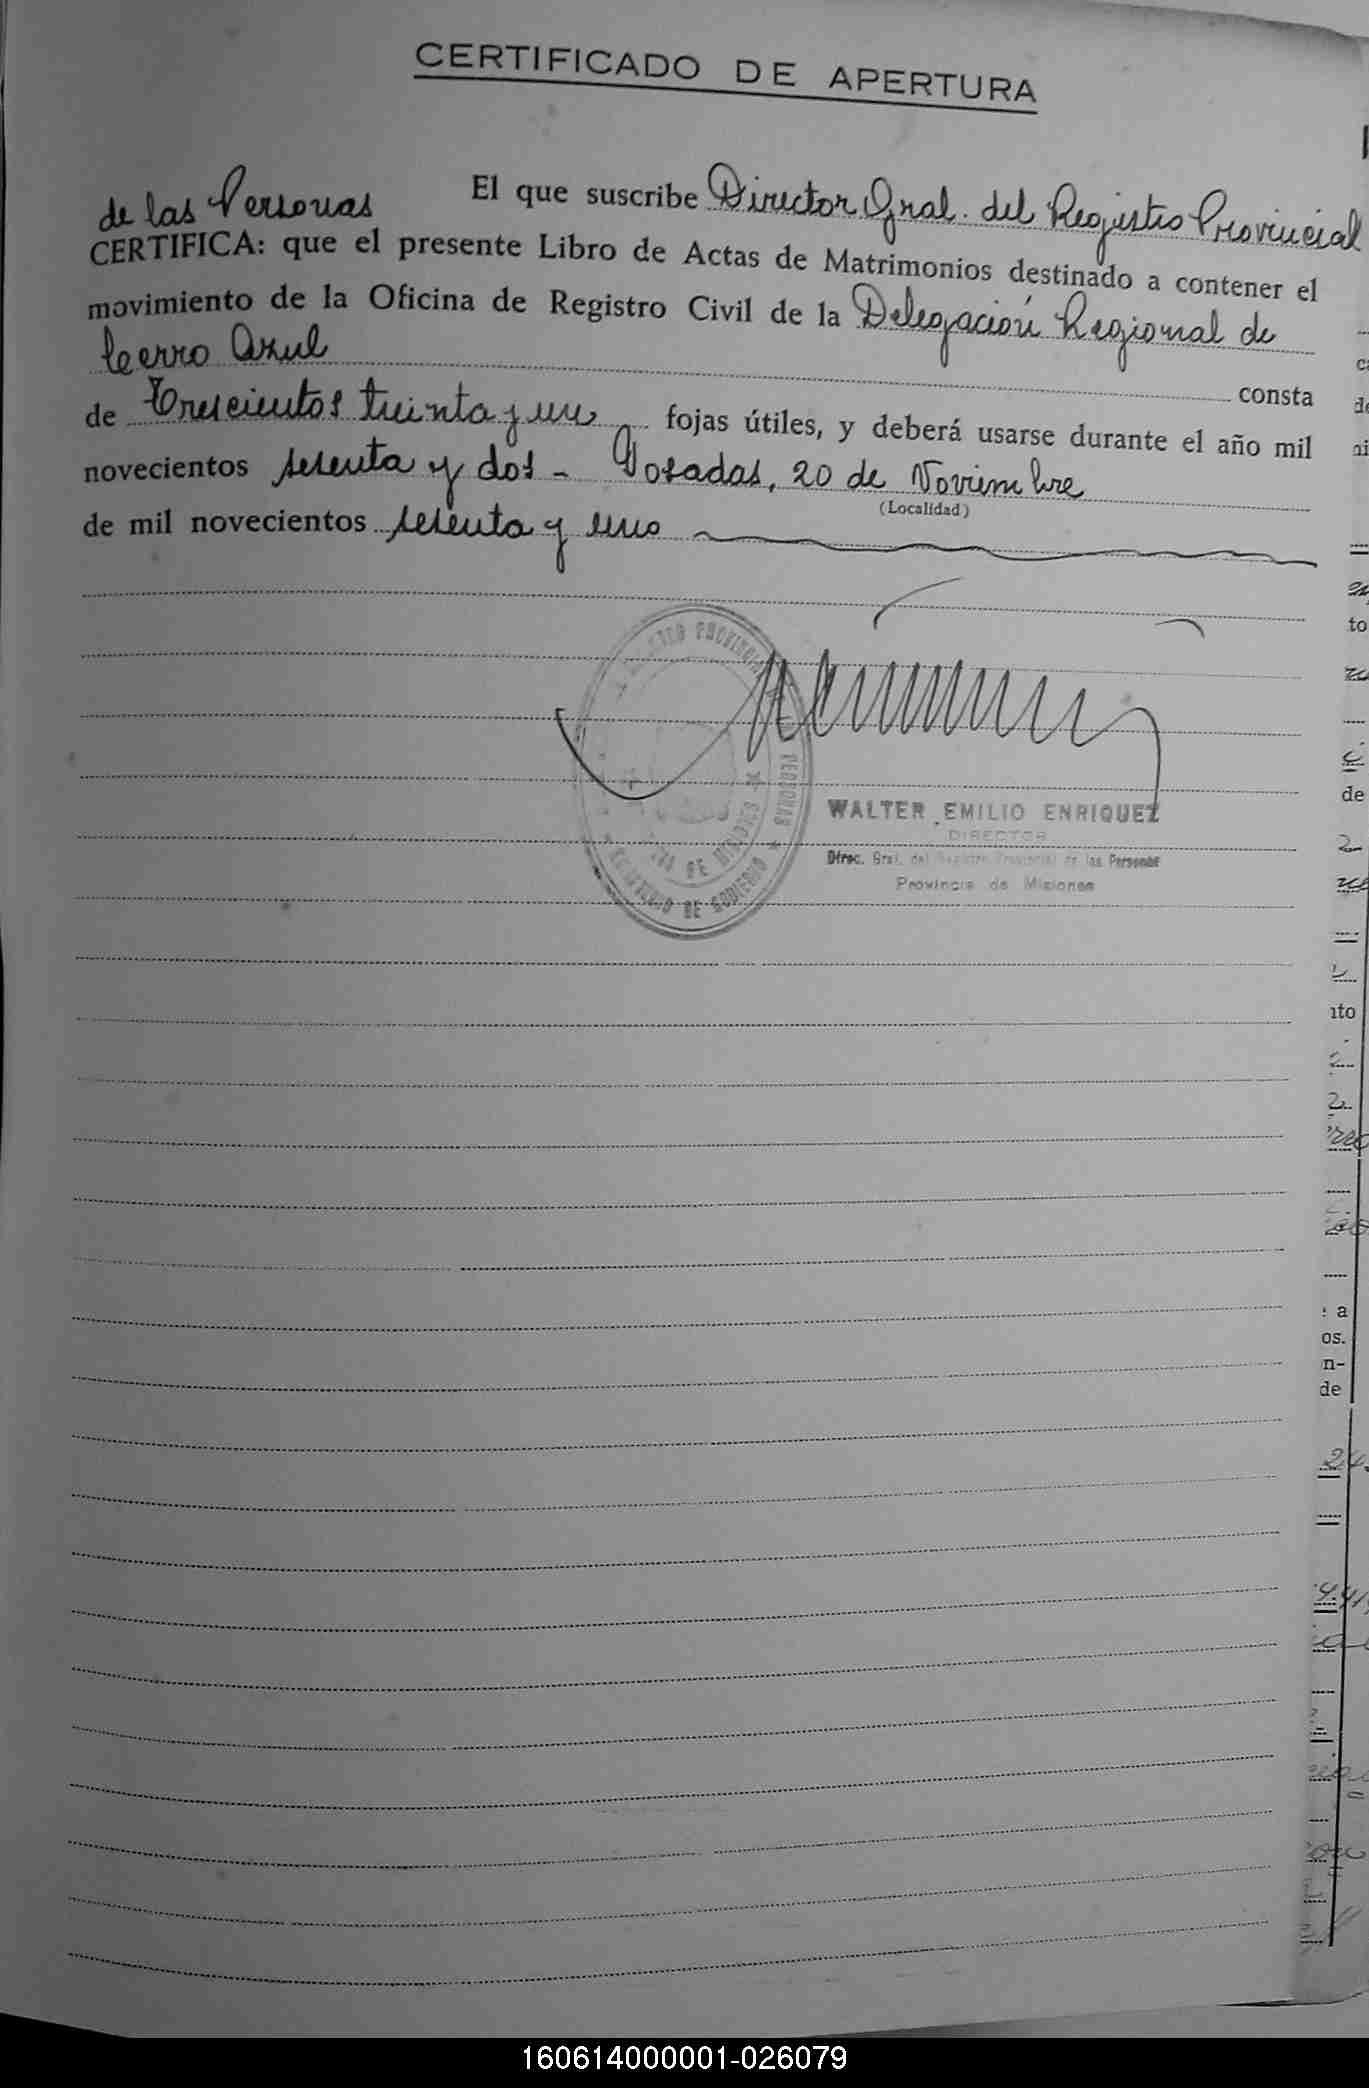 CERTIFICADO DE APERTURA
El que suscribe Director Gral. del Registro Provincial
de las Personas
CERTIFICA: que el presente Libro de Actas de Matrimonios destinado a contener el
movimiento de la Oficina de Registro Civil de la Delegación Regional de
Cerro Azul consta
de Trescientos treinta y un fojas útiles, y deberá usarse durante el año mil
novecientos setenta y dos - Posadas, 20 de Noviembre
(Localidad)
de mil novecientos setenta y uno
WALTER EMILIO ENRIQUEZ
DIRECTOR
Direc. Gral. del Registro Provincial de las Personas
Provincia de Misiones
PROVINCIAL
PERSONAS
DE MISIONES
MINISTERIO DE GOBIERNO
to
de
nto
a
os.
n-
de
24
160614000001-026079